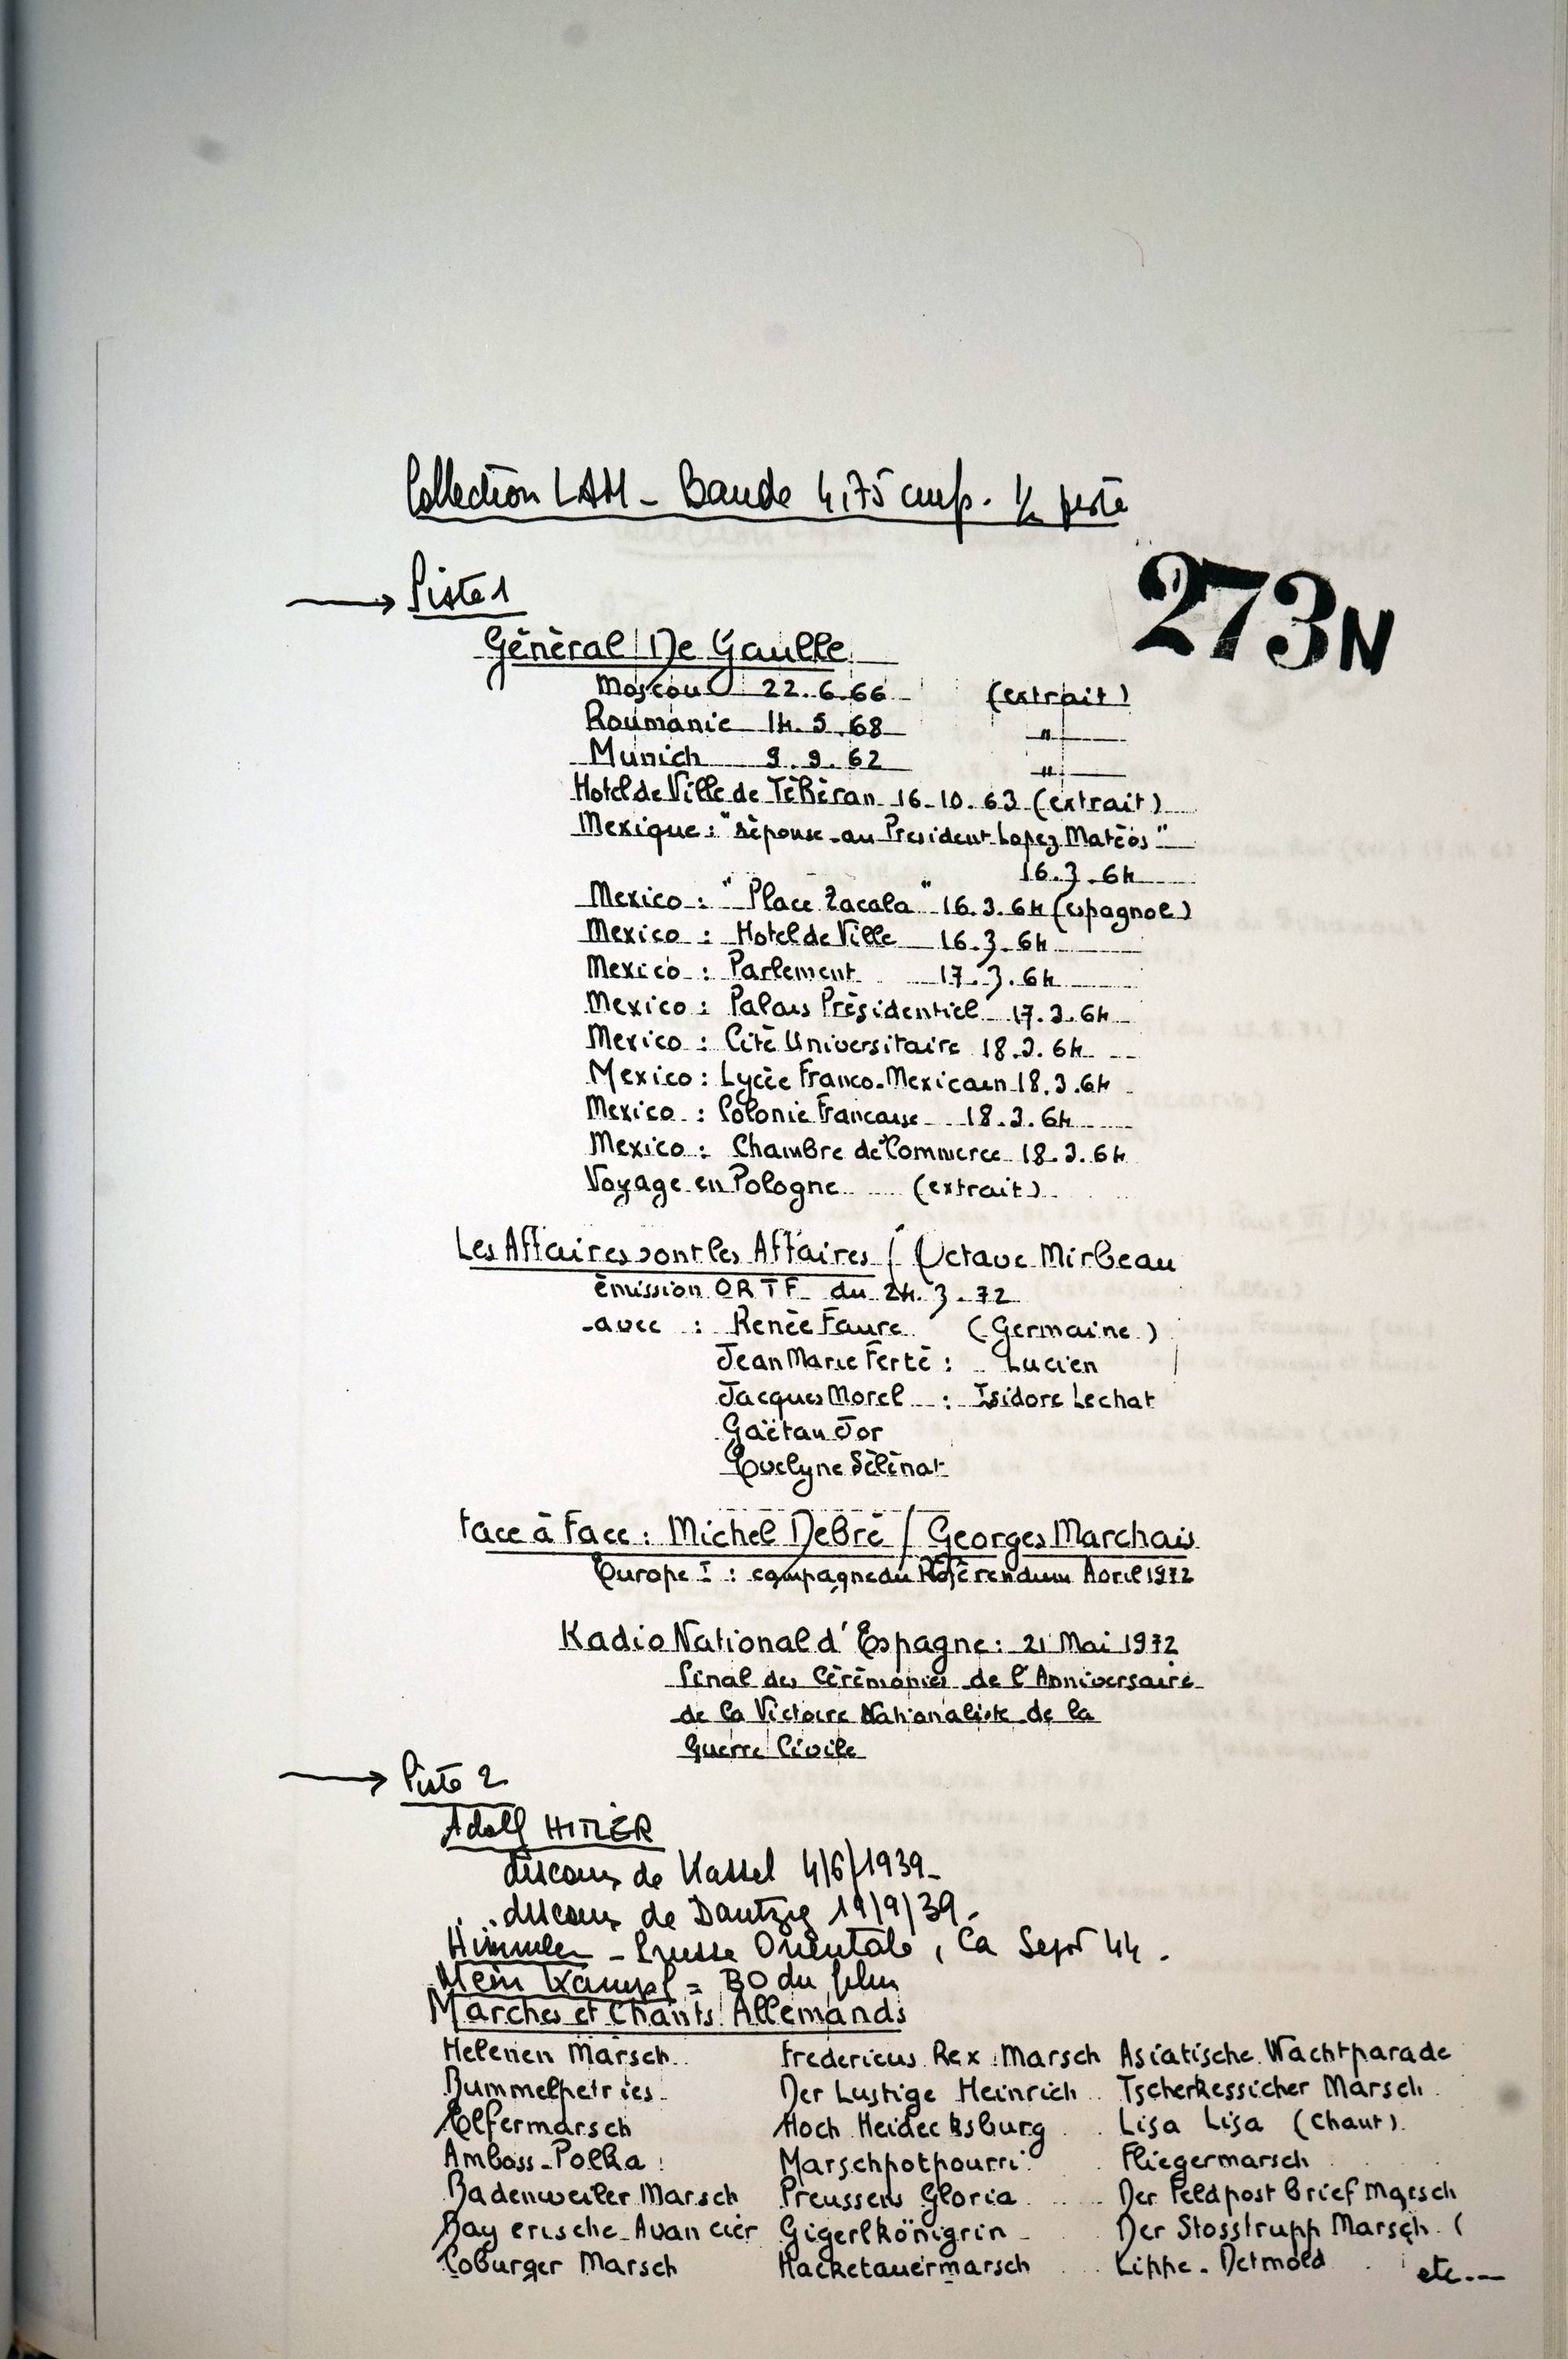 Collection LAM - Bande 4,75 cmps. 1/2 piste
273N
→ Piste 1
Général De Gaulle
Moscou 22.6.66 (extrait)
Roumanie 14.5.68 "
Munich 9.9.62 "
Hotel de Ville de Téhéran 16.10.63 (extrait)
Mexique : "Réponse au President Lopez Matéos"
16.3.64
Mexico : "Place Zacala" 16.3.64 (espagnol)
Mexico : Hotel de Ville 16.3.64
Mexico : Parlement 17.3.64
Mexico : Palais Présidentiel 17.3.64
Mexico : Cité Universitaire 18.3.64
Mexico : Lycée Franco-Mexicain 18.3.64
Mexico : Colonie Francaise 18.3.64
Mexico : Chambre de Commerce 18.3.64
Voyage en Pologne (extrait)
Les Affaires sont les Affaires / Octave Mirbeau
émission ORTF du 24.3.72
avec : Renée Faure (Germaine)
Jean Marie Ferté : Lucien
Jacques Morel : Isidore Lechat
Gaëtan Jor
Evelyne Sélénat
Face à Face : Michel Debré / Georges Marchais
Europe I : campagne du Référendum Avril 1972
Radio National d'Espagne : 21 Mai 1972
Final des Cérémonies de l'Anniversaire
de la Victoire Nationaliste de la
Guerre Civile
→ Piste 2
Adolf HITLER
discours de Kassel 4/6/1939
discours de Dantzig 19/9/39.
Himmler - Prusse Orientale, Ca Sept 44.
Mein Kampf = BO du film
Marches et Chants Allemands
Helenen Marsch Fredericus Rex Marsch Asiatische Wachtparade
Bummelpetries Der Lustige Heinrich Tscherkessicher Marsch
Elfermarsch Hoch Heidecksburg Lisa Lisa (Chant)
Amboss-Polka Marschpotpourri Fliegermarsch
Badenweiler Marsch Preussens Gloria Der Feldpost brief Marsch
Bayerische Avancier Gigerlkönigrin Der Stosstrupp Marsch (
Coburger Marsch Hacketauermarsch Lippe-Detmold etc...